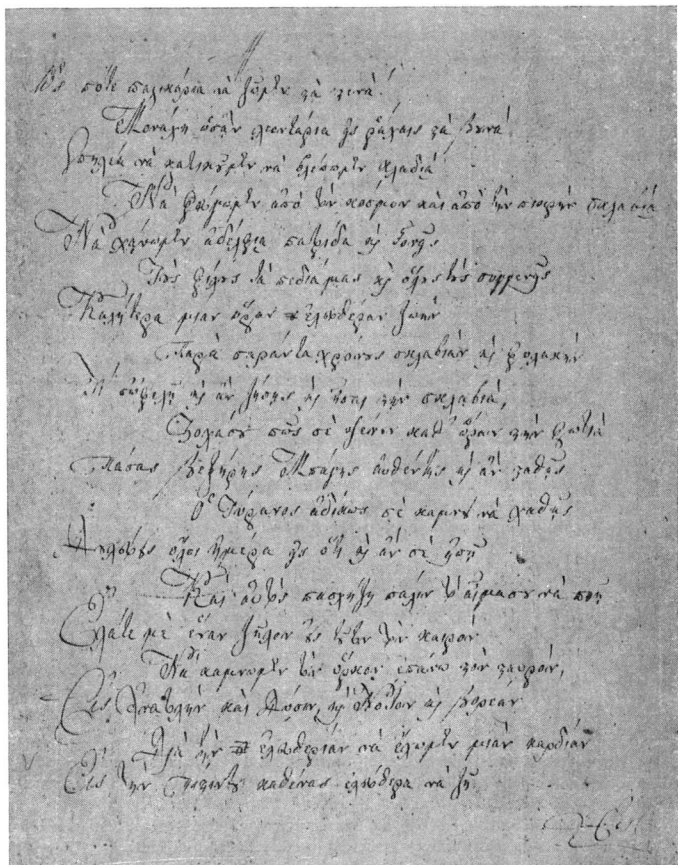 Ὡς πότε παλικάρια νὰ ζοῦμεν τὰ στενά!
Μονάχοι ὡσὰν λεοντάρια ἐς ῥάχαις τὰ βουνά
Σπηλεὰ νὰ κατικοῦμεν νὰ βλέπομεν κλαδιά
Νὰ φεύγομεν ἀπὸ τὸν κόσμον καὶ ἀπὸ τὴν πικρὴν σκλαβιά
Νὰ χάνομεν ἀδέλφια πατρίδα καὶ γονεῖς
Τοὺς φίλους τὰ πεδιά μας καὶ ὅλους τοὺς συγγενεῖς
Καλήτερα μιὰν ὥραν ἐλευθέραν ζωὴν
Παρὰ σαράντα χρόνους σκλαβιὰν καὶ φυλακὴν
Τί σ' ὠφελῆ καὶ ἂν ζήσης καὶ εἶσαι στὴν σκλαβιά,
Στοχάσου πῶς σὲ ψένουν καθ' ὥραν στὴν φωτιά
Πάσας βεζήρης Μπάγης αὐθέντης καὶ ἂν σταθῆς
Ὁ Τύρανος ἀδίκως σὲ κάμνει νὰ χαθῆς
Δουλεύεις ὅλη ἡμέρα εἰς ὅτι καὶ ἂν σὲ εἰπῆ
Καὶ αὐτὸς πασχίζη πάλιν τὸ αἷμα σου νὰ πιῆ
Ἐλάτε μὲ ἕναν ζῆλον εἰς τοῦτον τὸν καιρὸν
Νὰ κάμνομεν τὸν ὅρκον ἐπάνω στὸν σταυρόν,
Εἰς Ἀνατολὴν καὶ Δύσιν, καὶ Νότον καὶ βορέαν
Διὰ τὴν ἐλευθερίαν νὰ ἔχωμεν μιὰν καρδιὰν
Εἰς τὴν πίστιν του καθένας ἐλεύθερα νὰ ζῆ
Εἰς